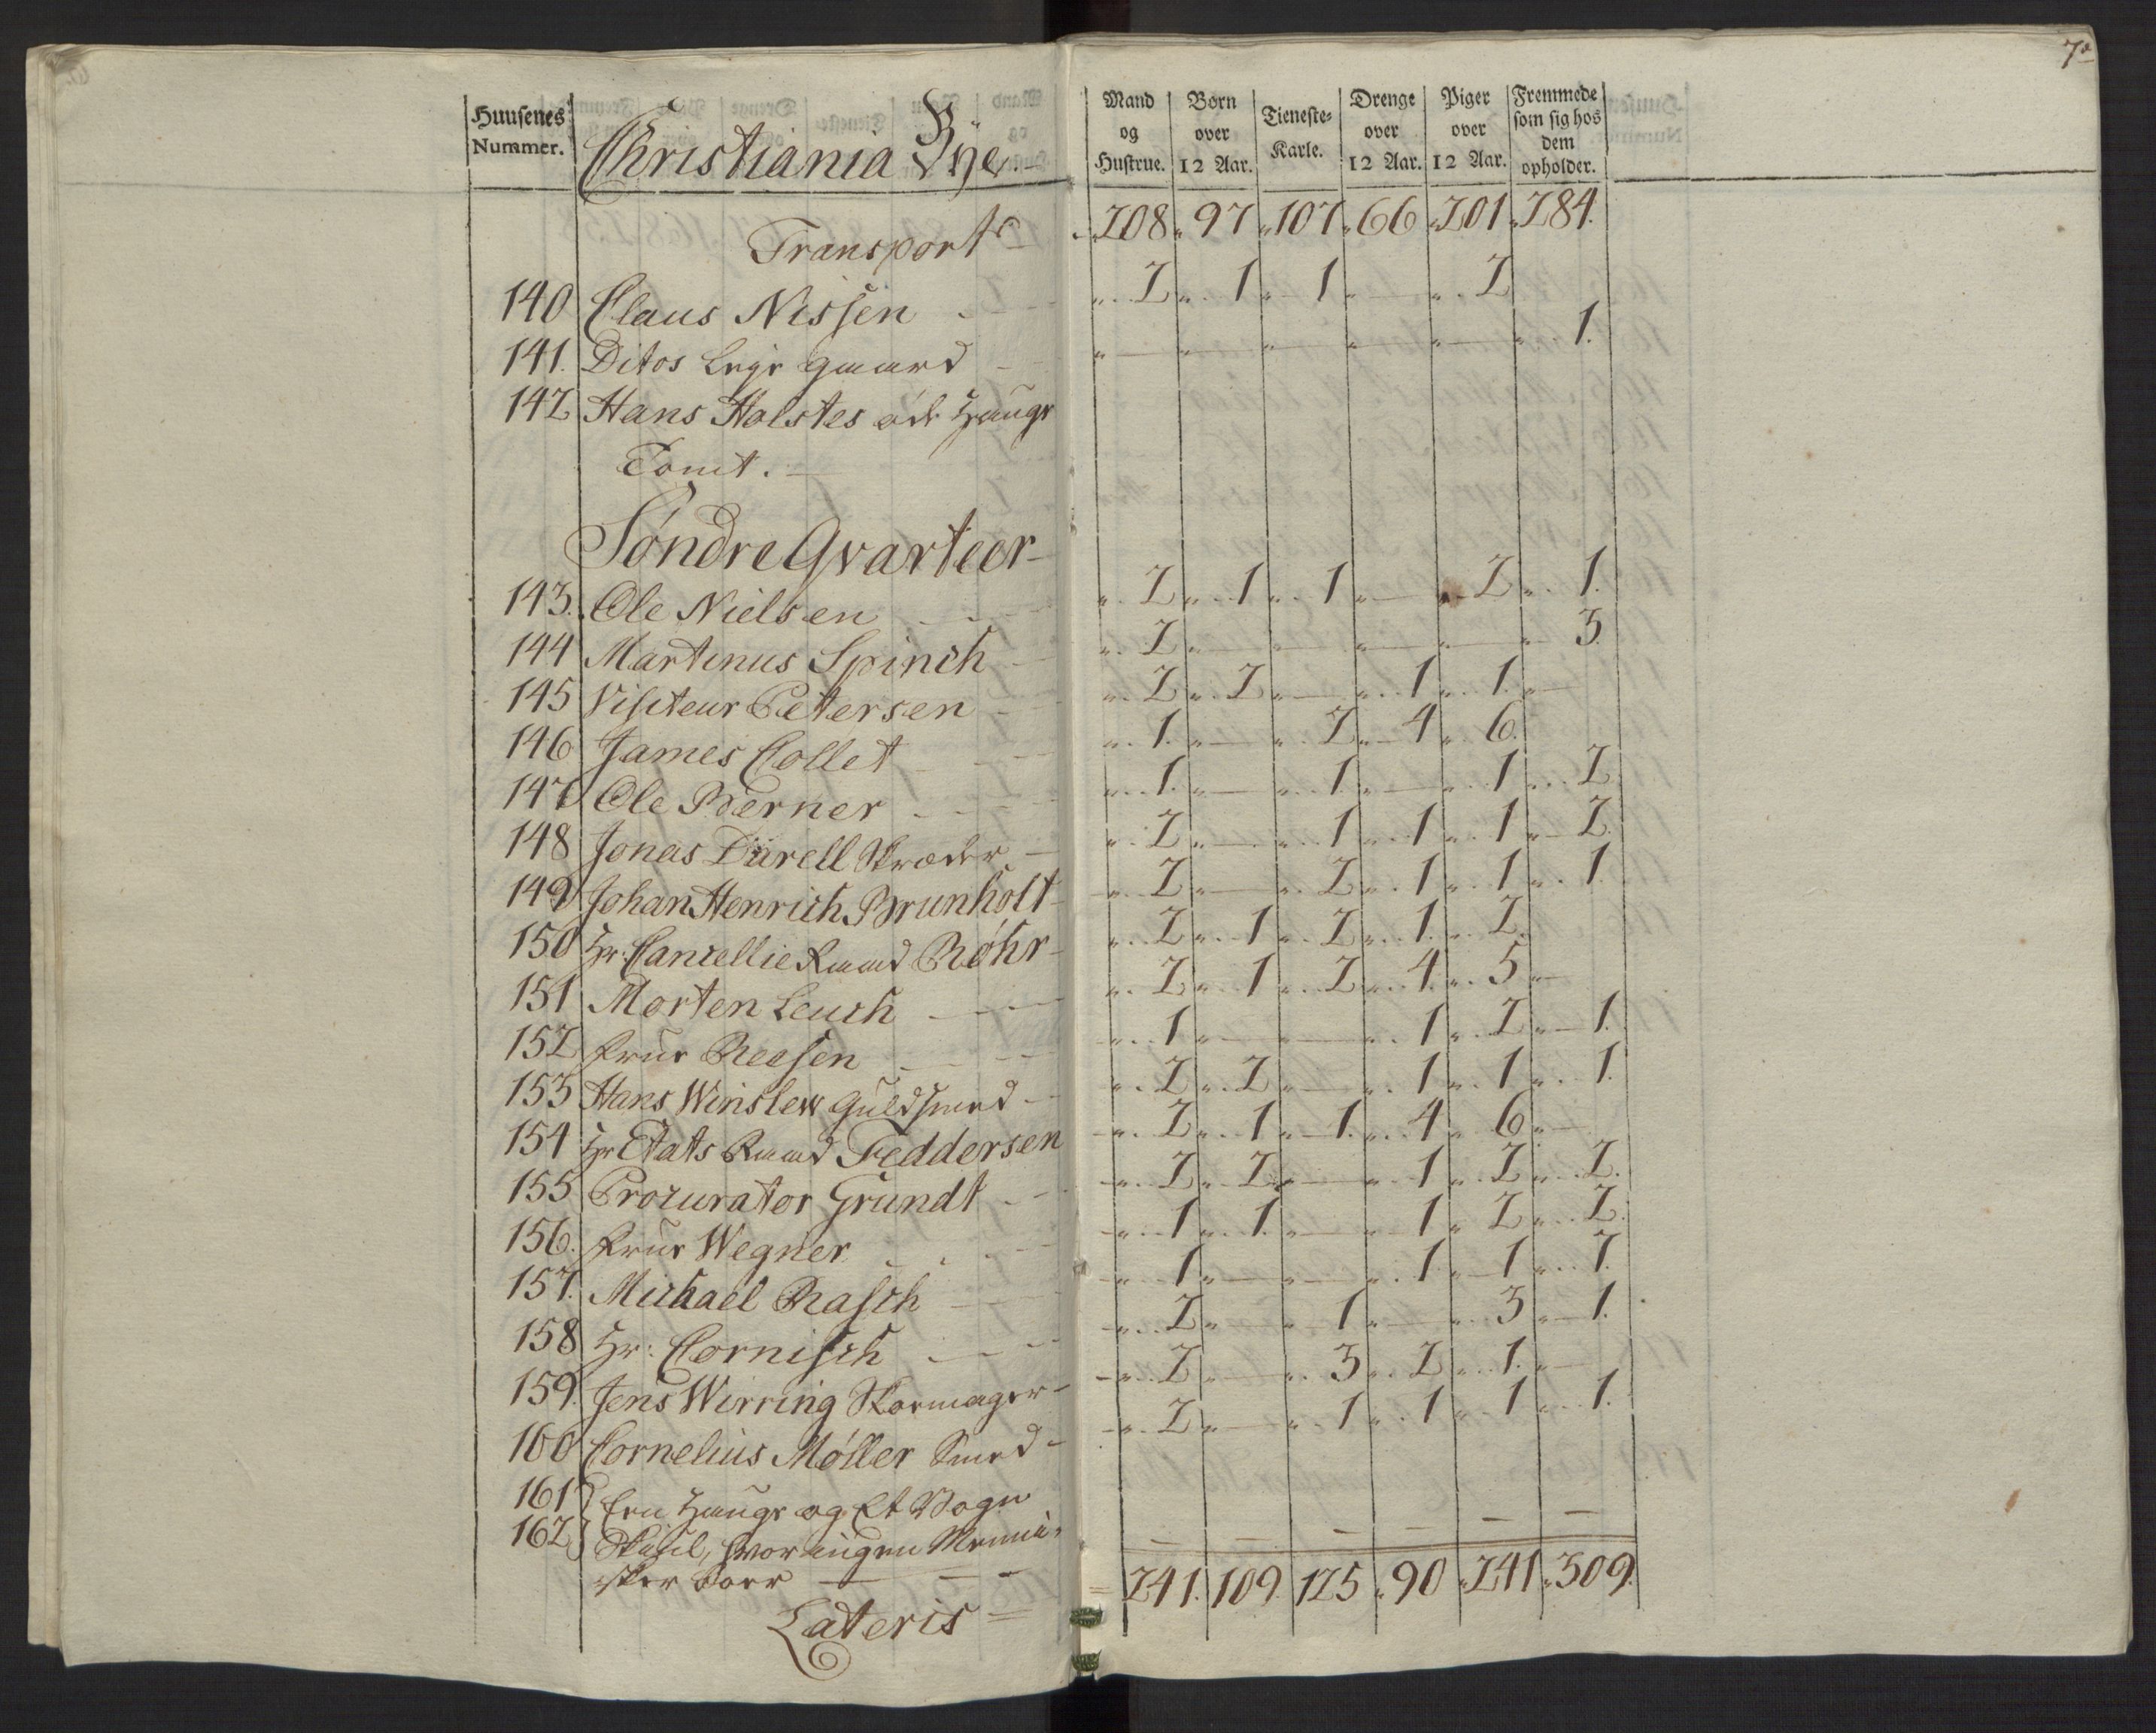 7ª
Huusenes Nummer. Christiania Bÿe. Mand og Hustrue. Børn over 12 Aar. Tieneste-Karle. Drenge over 12 Aar. Piger over 12 Aar. Fremmede som sig hos dem opholder.
Transport 208 97 107 66 201 284.
140 Claus Nissen 2 1 1 — 2
141. Ditos Leye Gaard — — — — — 1.
142 Hans Holstes øde Hauge
Tomt.
Søndre Qvarteer
143. Ole Nielsen 2 1 1 — 2 1.
144 Martinus Spinch 2 — — — — 3.
145 Visiteur Petersen 2 2 — 1 1. —
146 James Collet 1. — 2 4 6.
147 Ole Berner 1. — 1 — 1 2
148 Jonas Dürell Skræder 2 — 1 1 1 2.
149 Johan Henrich Brunholt 2 — 2 1 1 1.
150 Hr: Cancellie Raad Röhr 2 1 2 1. 2.
151 Morten Leuch 2 1 2 4 5 —
152 Frue Reesen 1 — — 1 2 1.
153 Hans Winslew Guldsmed 2 2 — 1 1 1.
154 Hr Etats Raad Feddersen 2 1 1 4 6 —
155 Procurator Grundt 2 2 — 1 2 2.
156. Frue Wegner 1 1. — 1 2 2.
157. Michael Rasch 1 — — 1 1 7.
158 Hr: Cornisch 2 — 1 — 3 1.
159. Jens Wirring Skoemager 2 — 3 2 1. —
160 Cornelius Møller Smed 2 — 1 1 1 1.
161 Een Hauge og Et Vogn
162 Skuul, hvor ingen Menni-
sker boer
Lateris 241. 109. 125 90 241 309.